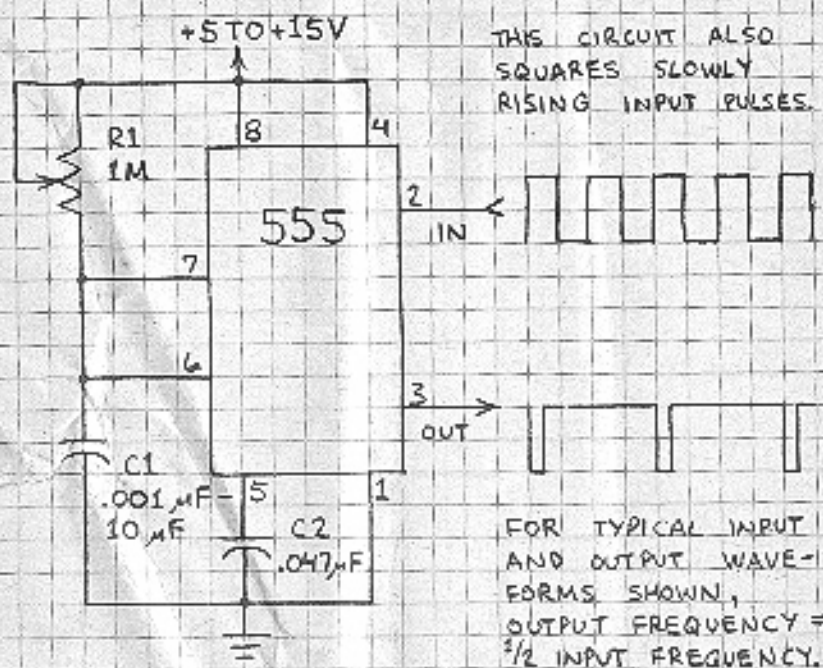 +5 TO +15V
THIS CIRCUIT ALSO
SQUARES SLOWLY
RISING INPUT PULSES.
R1
1M
8
4
555
2
IN
7
6
3
OUT
C1
.001 µF -
10 µF
5
1
C2
.047µF
FOR TYPICAL INPUT
AND OUTPUT WAVE-
FORMS SHOWN,
OUTPUT FREQUENCY =
1/2 INPUT FREQUENCY.